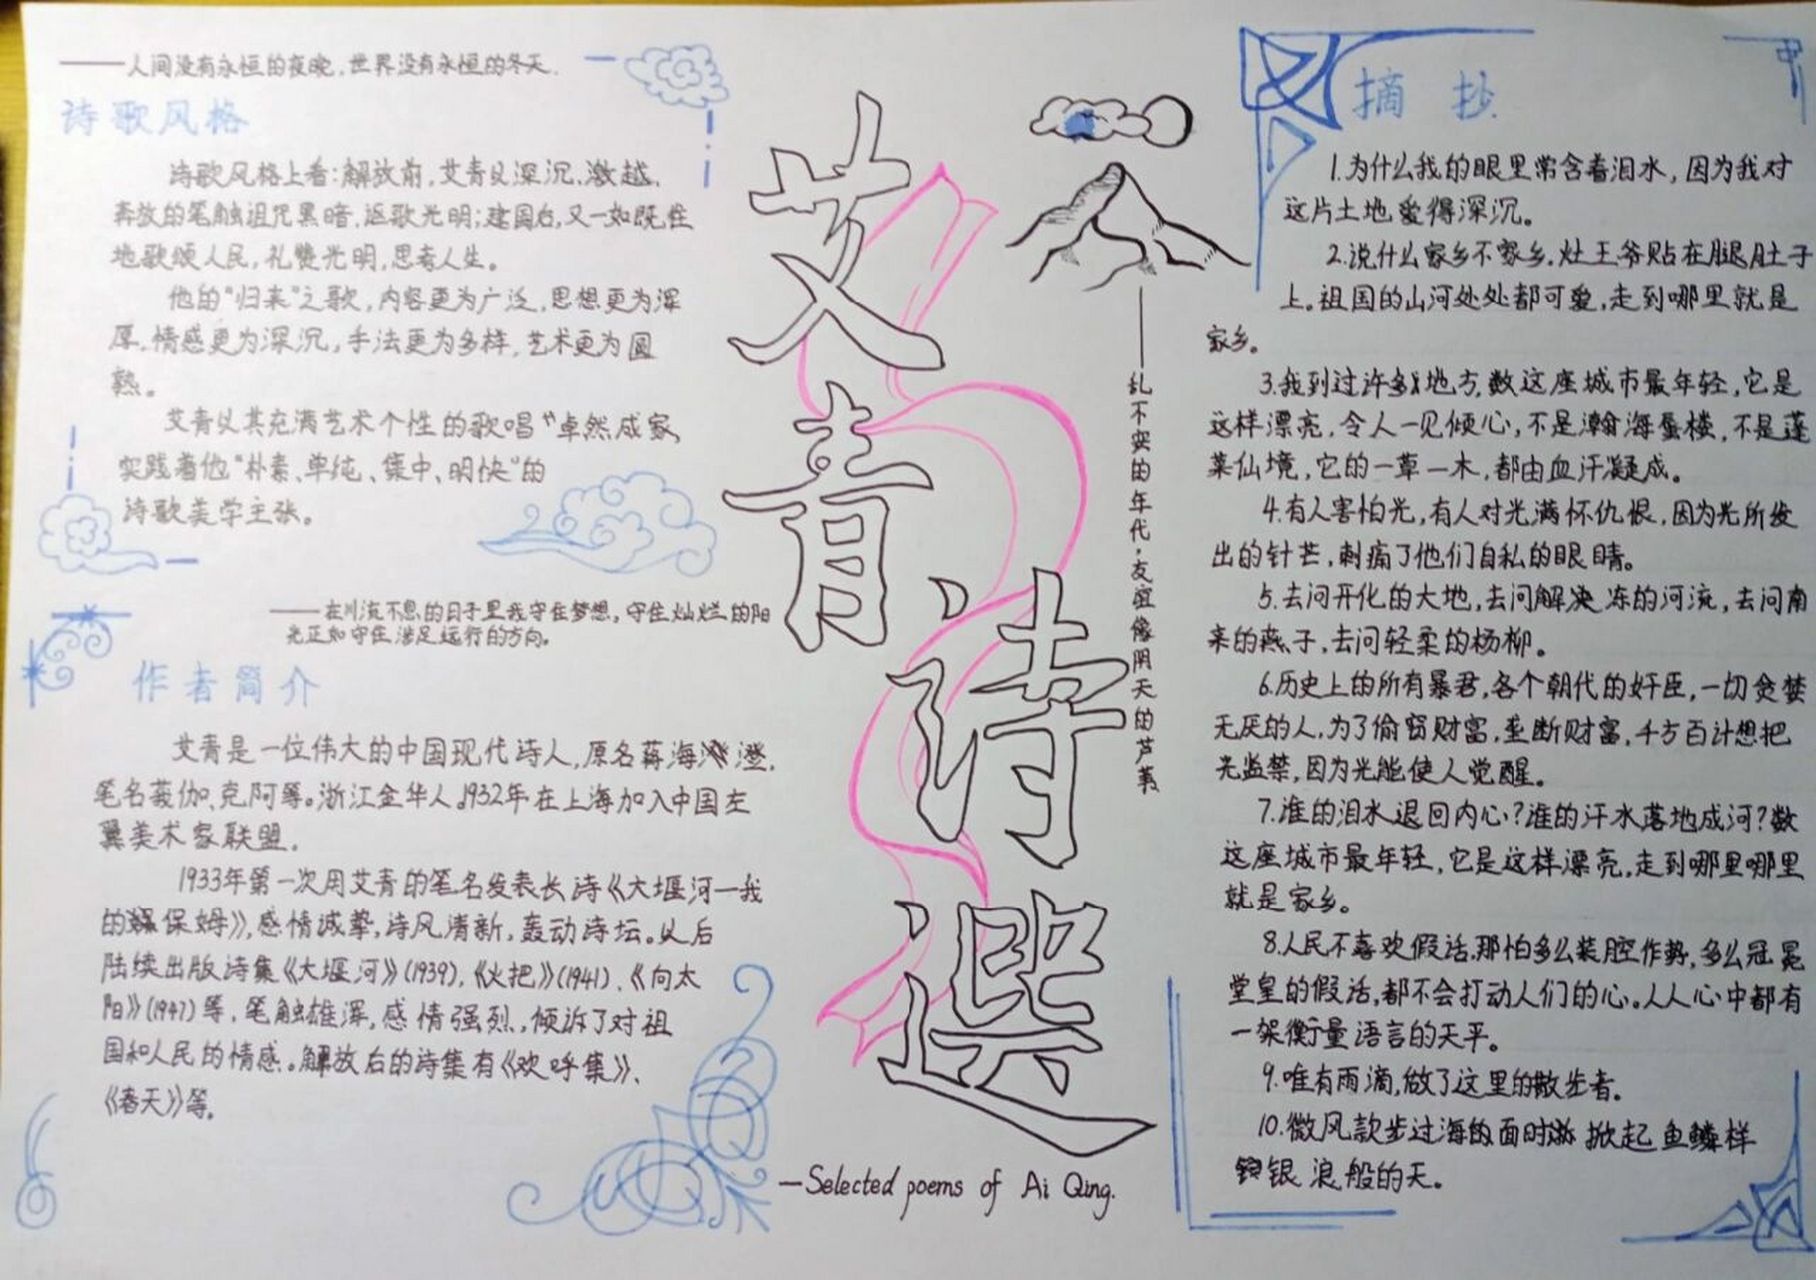 ——人间没有永恒的夜晚，世界没有永恒的冬天．
诗歌风格
诗歌风格上看：解放前，艾青以深沉、激越、
奔放的笔触诅咒黑暗，讴歌光明；建国后，又一如既往
地歌颂人民，礼赞光明，思考人生。
他的“归来”之歌，内容更为广泛，思想更为浑
厚，情感更为深沉，手法更为多样，艺术更为圆
熟。
艾青以其充满艺术个性的歌唱“卓然成家，
实践着他“朴素、单纯、集中、明快”的
诗歌美学主张。
——在川流不息的日子里我守住梦想，守住灿烂的阳
光正如守住涉足远行的方向。
作者简介
艾青是一位伟大的中国现代诗人，原名蒋海澄，
笔名莪伽、克阿等。浙江金华人。1932年在上海加入中国左
翼美术家联盟．
1933年第一次用艾青的笔名发表长诗《大堰河—我
的保姆》，感情诚挚，诗风清新，轰动诗坛。以后
陆续出版诗集《大堰河》(1939)，《火把》(1941)、《向太
阳》(1947)等，笔触雄浑，感情强烈，倾诉了对祖
国和人民的情感。解放后的诗集有《欢呼集》、
《春天》等。
艾青诗选
——乱不安的年代，友谊像阴天的芦苇
—Selected poems of Ai Qing.
摘抄
1.为什么我的眼里常含着泪水，因为我对
这片土地爱得深沉。
2.说什么家乡不家乡，灶王爷贴在腿肚子
上。祖国的山河处处都可爱，走到哪里就是
家乡。
3.我到过许多地方，数这座城市最年轻，它是
这样漂亮，令人一见倾心，不是瀚海蜃楼，不是蓬
莱仙境，它的一草一木，都由血汗凝成。
4.有人害怕光，有人对光满怀仇恨，因为光所发
出的针芒，刺痛了他们自私的眼睛。
5.去问开化的大地，去问解决冻的河流，去问南
来的燕子，去问轻柔的杨柳。
6.历史上的所有暴君，各个朝代的奸臣，一切贪婪
无厌的人，为了偷窃财富，垄断财富，千方百计想把
光监禁，因为光能使人觉醒。
7.谁的泪水退回内心？谁的汗水落地成河？数
这座城市最年轻，它是这样漂亮，走到哪里哪里
就是家乡。
8.人民不喜欢假话，那怕多么装腔作势，多么冠冕
堂皇的假话，都不会打动人们的心。人人心中都有
一架衡量语言的天平。
9.唯有雨滴，做了这里的散步者。
10.微风款步过海的面时掀起鱼鳞样
银浪般的天。